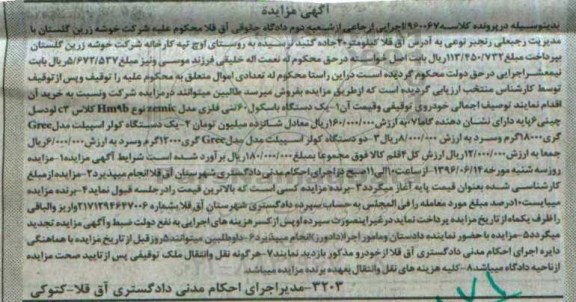 آگهی مزایده
بدینوسیله در پرونده کلاسه ۹۶۰۰۶۷ اجرایی ارجاعی از شعبه دوم دادگاه حقوقی آق قلا محکوم علیه شرکت خوشه زرین گلستان با
مدیریت رجبعلی رنجبر نوعی به آدرس آق قلا کیلومتر ۲۰ جاده گنبد نرسیده به روستای اوچ تپه کارخانه شرکت خوشه زرین گلستان
بپرداخت مبلغ ۱۱۳/۴۵۰/۷۳۲ ریال بابت اصل خواسته در حق محکوم له نعمت اله خلیقی فرزند موسی ونیز مبلغ ۵/۶۷۲/۵۳۷ ریال بابت
نیمعشر اجرایی در حق دولت محکوم گردیده است در این راستا محکوم له تعدادی اموال متعلق به محکوم علیه را توقیف وپس از توقیف
توسط کارشناس منتخب ارزیابی گردیده است که از طریق مزایده بفروش میرسد طالبین میتوانند در مزایده شرکت ونسبت به خرید آن
اقدام نمایند توصیف اجمالی خودروی توقیفی وقیمت آن ۱- یک دستگاه باسکول ۶۰ تنی فلزی مدل zemic نوع Hm9b کلاس c3 لودسل
چینی ۶ پایه دارای نشان دهنده کاما ۷ به ارزش ۱۶۰/۰۰۰/۰۰۰ ریال معادل شانزده میلیون تومان ۲- یک دستگاه کولر اسپیلت مدل Gree
گری ۱۸۰۰۰ گرم وسرد به ارزش ۸/۰۰۰/۰۰۰ ریال ۳- دو دستگاه کولر اسپیلت مدل Gree گری ۱۲۰۰۰ گرم وسرد به ارزش ۶/۰۰۰/۰۰۰ ریال
جمعا به ارزش ۱۲/۰۰۰/۰۰۰ ریال ارزش کل ۴ قلم کالا فوق مجموعا بمبلغ ۱۸۰/۰۰۰/۰۰۰ ریال بر آورد شده است شرایط آگهی مزایده ۱- مزایده
روز سه شنبه مورخه ۱۳۹۶/۰۶/۱۴ از ساعت ۱۰ الی ۱۱ صبح در اجرای احکام مدنی دادگستری شهرستان آق قلا انجام میپذیرد ۲- مزایده از مبلغ
کارشناسی شده بعنوان قیمت پایه آغاز میگردد ۳- برنده مزایده کسی است که بالاترین قیمت را در جلسه قبول نماید ۴- برنده مزایده
میبایست ۱۰ درصد مبلغ مورد معامله را فی المجلس به حساب سپرده دادگستری شهرستان آق قلا بشماره ۲۱۷۱۲۹۴۶۶۷۰۰۶ واریز والباقی
را ظرف یکماه از تاریخ مزایده پرداخت نماید در غیر اینصورت سپرده او پس از کسر هزینه های اجرایی به نفع دولت ضبط و آگهی مزایده تجدید
میگردد ۵- مزایده با حضور نماینده دادستان ومامور اجرا دادورز انجام میپذیرد ۶- داوطلبین میتوانند ۵ روز قبل از تاریخ مزایده با هماهنگی
دایره اجرای احکام مدنی دادگستری آق قلا از خودرو مذکور بازدید نمایند ۷- هر گونه نقل وانتقال ملک توقیفی پس از تایید صحت مزایده
از ناحیه دادگاه میباشد ۸- کلیه هزینه های نقل وانتقال بعهده برنده مزایده میباشد
۳۲۰۳- مدیر اجرای احکام مدنی دادگستری آق قلا- کتوکی